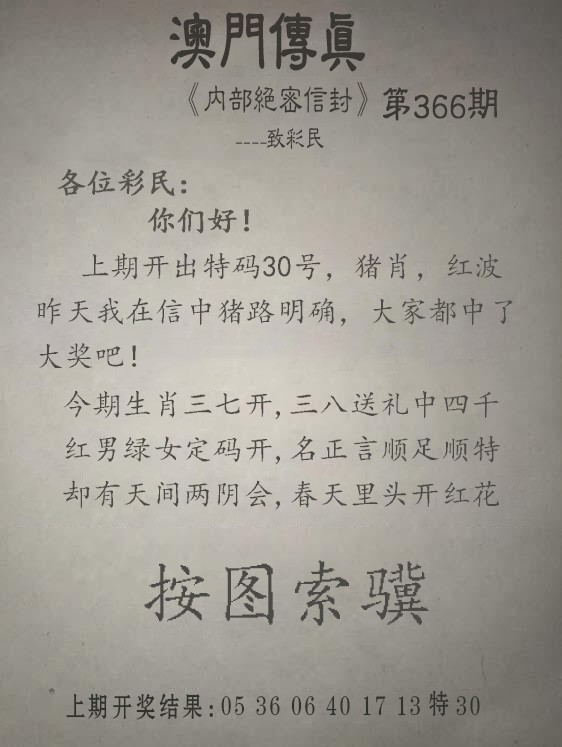 澳門傳眞
《内部絕密信封》第366期
----致彩民
各位彩民：
你们好！
上期开出特码30号，猪肖，红波
昨天我在信中猪路明确，大家都中了
大奖吧！
今期生肖三七开,三八送礼中四千
红男绿女定码开,名正言顺足顺特
却有天间两阴会,春天里头开红花
按图索骥
上期开奖结果:05 36 06 40 17 13 特 30